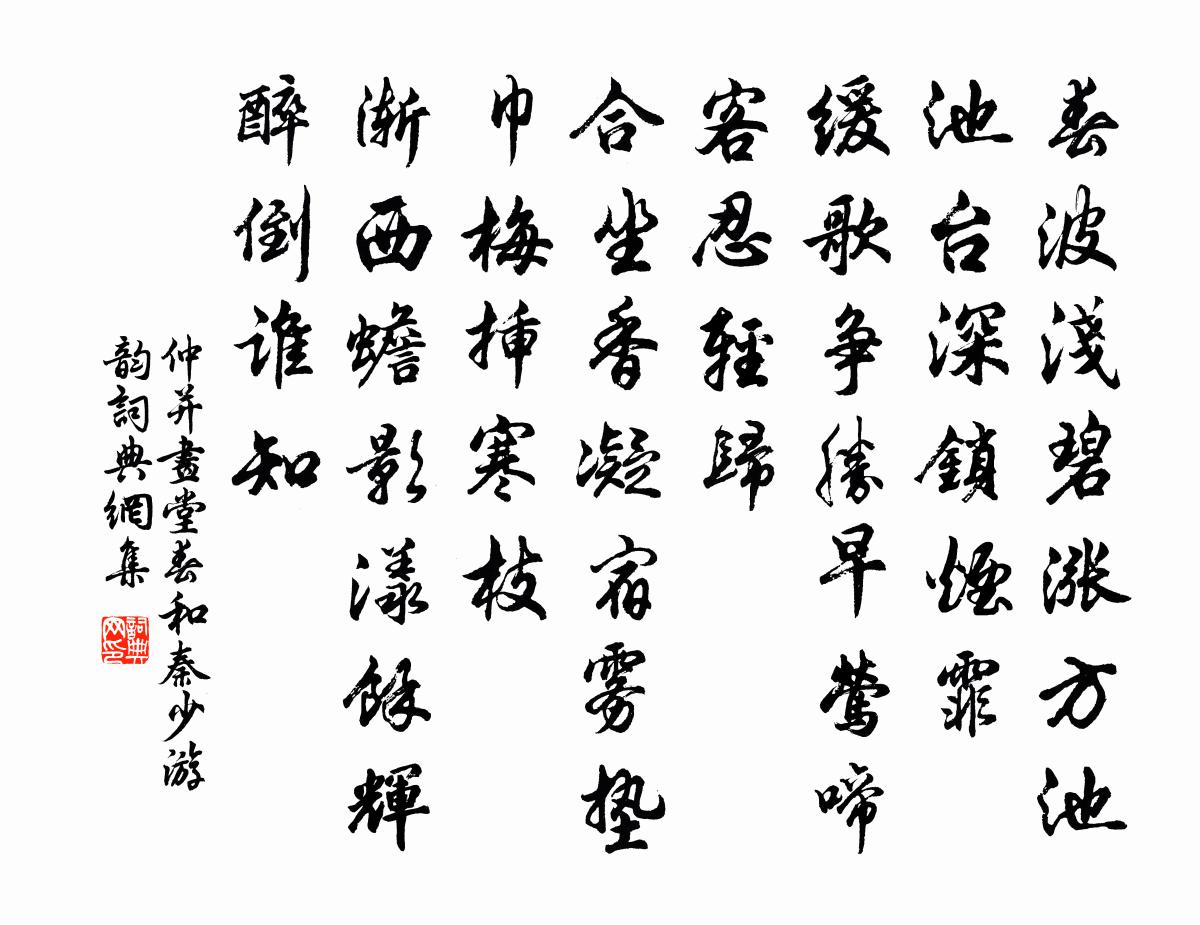 春波淺碧漲方池
池台深鎖煙霏
緩歌爭勝早鶯啼
客忍輕歸
合坐香凝宿雾垫
巾梅插寒枝
漸西蟾影漾餘輝
醉倒誰知
仲并畫堂春和秦少游
韵詞典網集
詞典网印